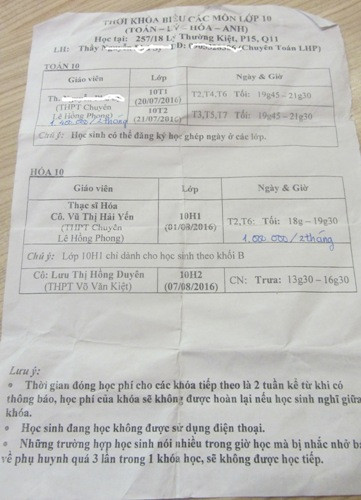 THỜI KHÓA BIỂU CÁC MÔN LỚP 10
(TOÁN – LÝ – HÓA – ANH)
Học tại: 257/18 Lý Thường Kiệt, P15, Q11
LH: Thầy (Chuyên Toán LHP)
TOÁN 10
Giáo viên Lớp Ngày & Giờ
Th.
(THPT Chuyên
Lê Hồng Phong)
1.600.000/2tháng
10T1
(20/07/2016)
T2,T4,T6 Tối: 19g45 – 21g30
10T2
(21/07/2016)
T3,T5,T7 Tối: 19g45 – 21g30
Chú ý: Học sinh có thể đăng ký học ghép ngày ở các lớp.
HÓA 10
Giáo viên Lớp Ngày & Giờ
Thạc sĩ Hóa
Cô. Vũ Thị Hải Yến
(THPT Chuyên
Lê Hồng Phong)
10H1
(01/08/2016)
T2,T6: Tối: 18g – 19g30
1.000.000/2tháng
Chú ý: Lớp 10H1 chỉ dành cho học sinh theo khối B
Cô: Lưu Thị Hồng Duyên
(THPT Võ Văn Kiệt)
10H2
(07/08/2016)
CN: Trưa: 13g30 – 16g30
Lưu ý:
• Thời gian đóng học phí cho các khóa tiếp theo là 2 tuần kể từ khi có
thông báo, học phí của khóa sẽ không được hoàn lại nếu học sinh nghỉ giữa
khóa.
• Học sinh đang học không được sử dụng điện thoại.
• Những trường hợp học sinh nói nhiều trong giờ học mà bị nhắc nhở
về phụ huynh quá 3 lần trong 1 khóa học, sẽ không được học tiếp.